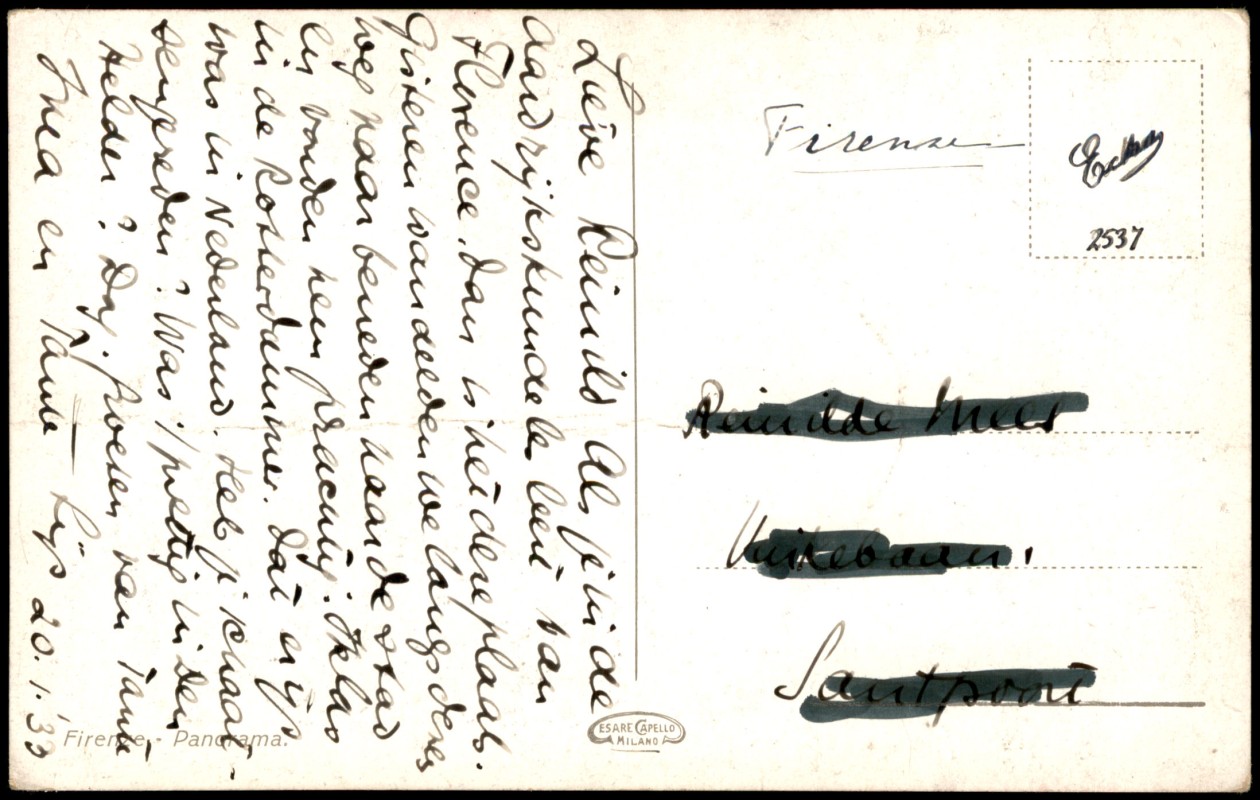 Lieve Reinild Als je in de
aardrijkskundeles leert van
Florence, dan is het deze plaats.
Gisteren wandelden we langs deze
weg naar beneden naar de stad
en vonden hem prachtig. Ik las
in de Rotterdammer, dat er ijs
was in Nederland. Heb je schaat-
sengereden? Was 't prettig in Den
Helder? Dag, groeten van Tante
Inea en Tante Lijs 20.1.'33
Firenze - Panorama.
CESARE CAPELLO
MILANO
Firenze
2537
Reinilde Mees
Santpoort